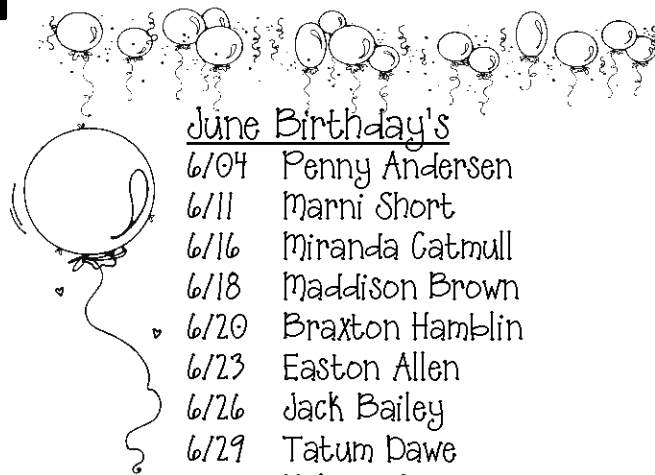 June Birthday's
6/04 Penny Andersen
6/11 Marni Short
6/16 Miranda Catmull
6/18 Maddison Brown
6/20 Braxton Hamblin
6/23 Easton Allen
6/26 Jack Bailey
6/29 Tatum Dawe